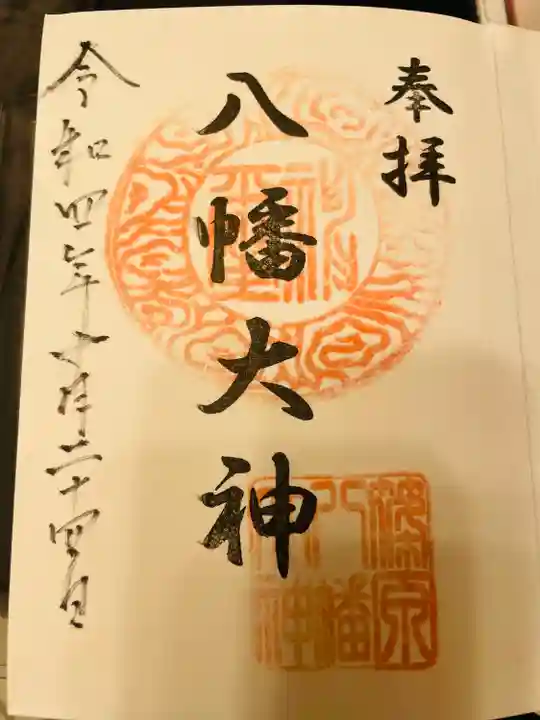 奉拝
八幡大神
令和四年七月二十四日
篠原
八幡